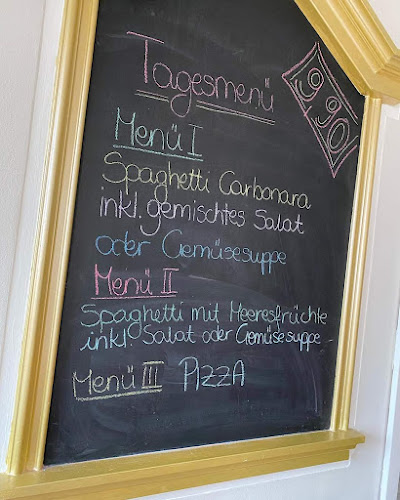 Tagesmenü
990
Menü I
Spaghetti Carbonara
inkl. gemischtes Salat
oder Gemüsesuppe
Menü II
Spaghetti mit Meeresfrüchte
inkl Salat oder Gemüsesuppe
Menü III PIZZA